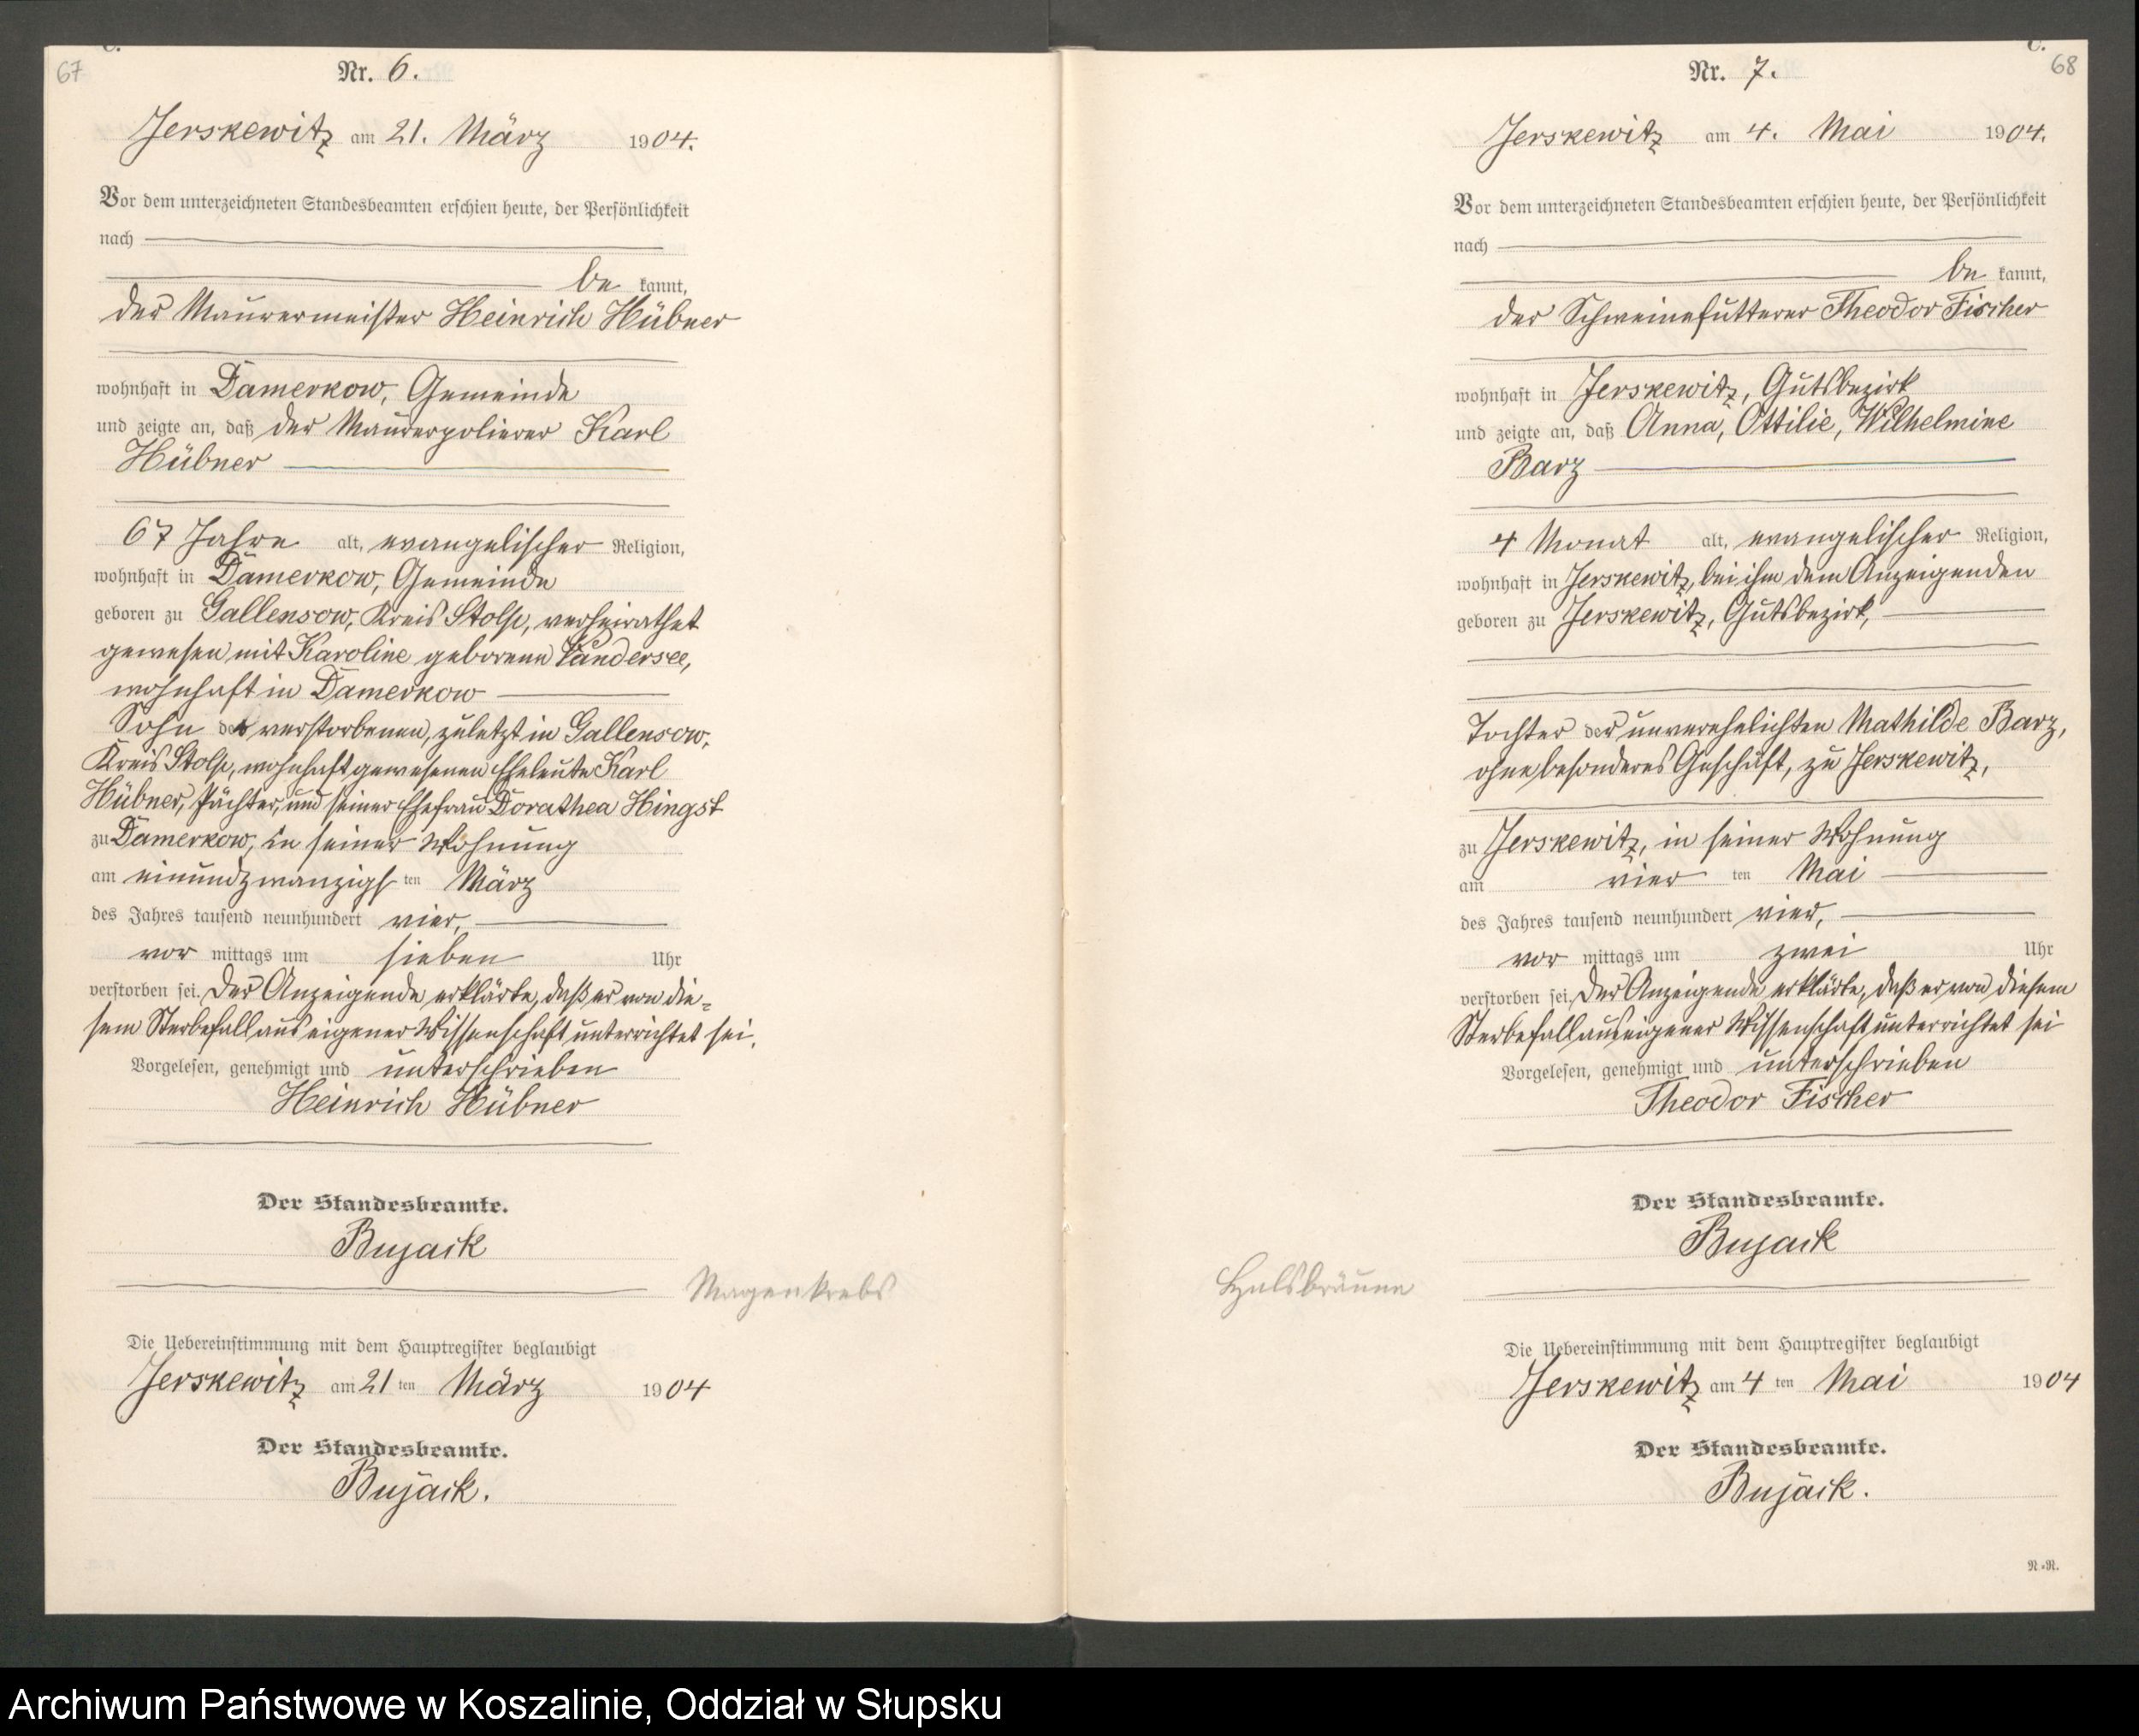 C.
67
Nr. 6.
Jerskewitz am 21. März 1904.
Vor dem unterzeichneten Standesbeamten erschien heute, der Persönlichkeit
nach
be kannt,
der Maurermeister Heinrich Hübner
wohnhaft in Damerkow, Gemeinde
und zeigte an, daß der Maurerpolierer Karl
Hübner
67 Jahre alt, evangelischer Religion,
wohnhaft in Damerkow, Gemeinde
geboren zu Gallensow, Kreis Stolp, verheirathet
gewesen mit Karoline geborene Vandersee,
wohnhaft in Damerkow
Sohn der verstorbenen, zuletzt in Gallensow,
Kreis Stolp, wohnhaft gewesenen Eheleute Karl
Hübner, Pächter, und seiner Ehefrau Dorathea Hingst
zu Damerkow, in seiner Wohnung
am einundzwanzigsten März
des Jahres tausend neunhundert vier,
vor mittags um sieben Uhr
verstorben sei. Der Anzeigende erklärte, daß er von die=
sem Sterbefall aus eigener Wissenschaft unterrichtet sei.
Vorgelesen, genehmigt und unterschrieben
Heinrich Hübner
Der Standesbeamte.
Bujack
Magenkrebs
Die Uebereinstimmung mit dem Hauptregister beglaubigt
Jerskewitz am 21 ten März 1904
Der Standesbeamte.
Bujack.
C.
68
Nr. 7.
Jerskewitz am 4. Mai 1904.
Vor dem unterzeichneten Standesbeamten erschien heute, der Persönlichkeit
nach
be kannt,
der Schweinefutterer Theodor Fischer
wohnhaft in Jerskewitz, Gutsbezirk
und zeigte an, daß Anna, Ottilie, Wilhelmine
Barz
4 Monat alt, evangelischer Religion,
wohnhaft in Jerskewitz, bei ihm dem Anzeigenden
geboren zu Jerskewitz, Gutsbezirk,
Tochter der unverehelichten Mathilde Barz,
ohne besonderes Geschäft, zu Jerskewitz,
zu Jerskewitz, in seiner Wohnung
am vier ten Mai
des Jahres tausend neunhundert vier,
vor mittags um zwei Uhr
verstorben sei. Der Anzeigende erklärte, daß er von diesem
Sterbefall aus eigener Wissenschaft unterrichtet sei
Vorgelesen, genehmigt und unterschrieben
Theodor Fischer
Der Standesbeamte.
Bujack
Halsbräune
Die Uebereinstimmung mit dem Hauptregister beglaubigt
Jerskewitz am 4 ten Mai 1904
Der Standesbeamte.
Bujack.
N.=N.
Archiwum Państwowe w Koszalinie, Oddział w Słupsku